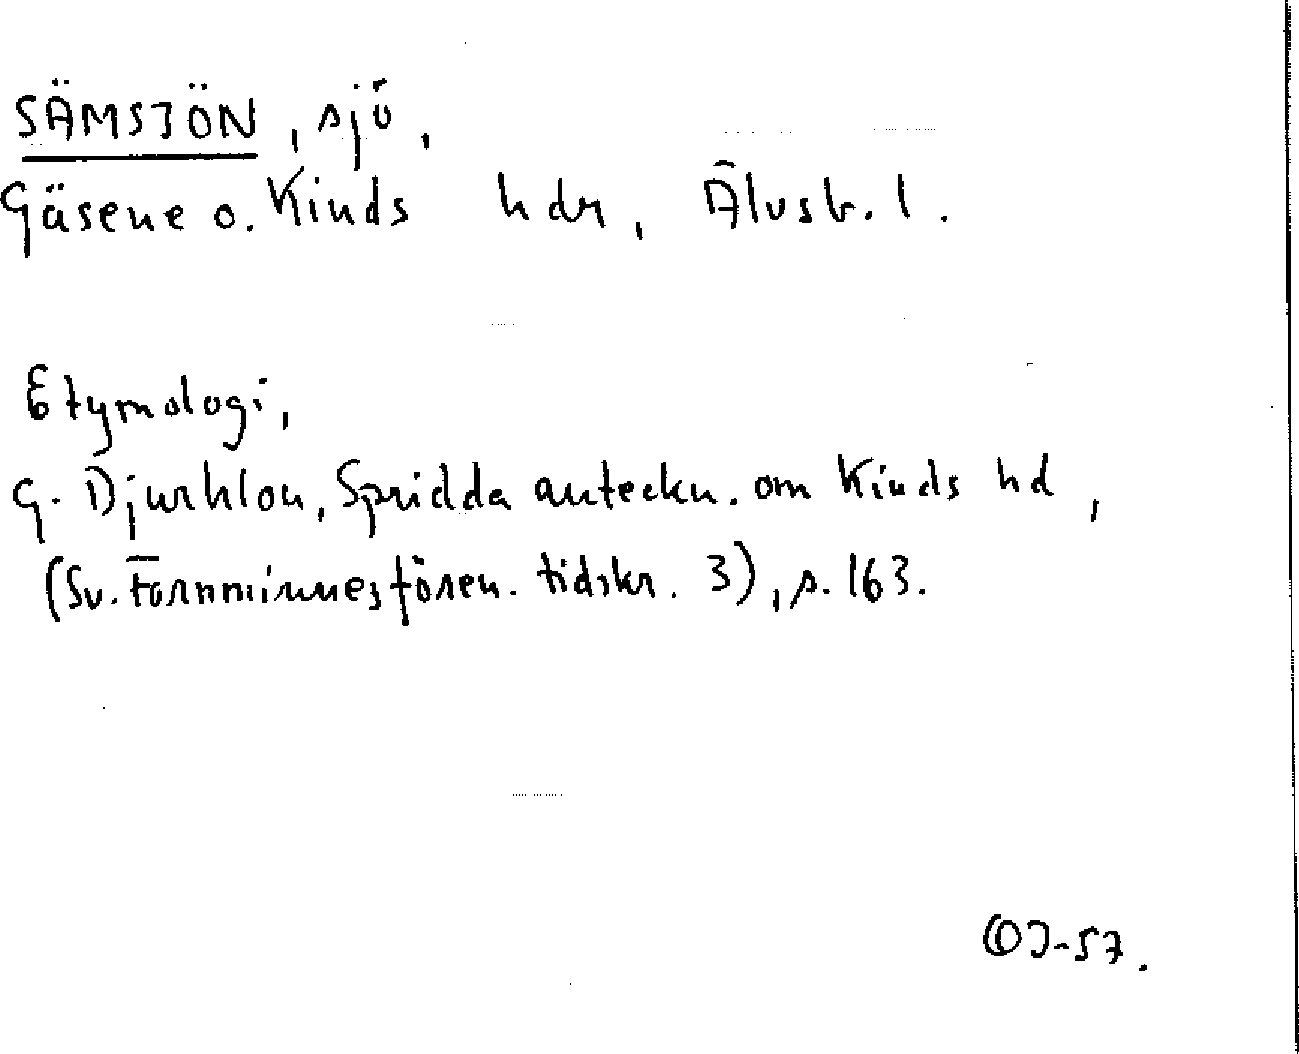 SÄMSJÖN, sjö,
Gäsene o. Kinds hdr, Älvsb. l.
Etymologi,
G. Djurklou, Spridda anteckn. om Kinds hd,
(Sv. Fornminnesfören. tidskr. 3), s. 163.